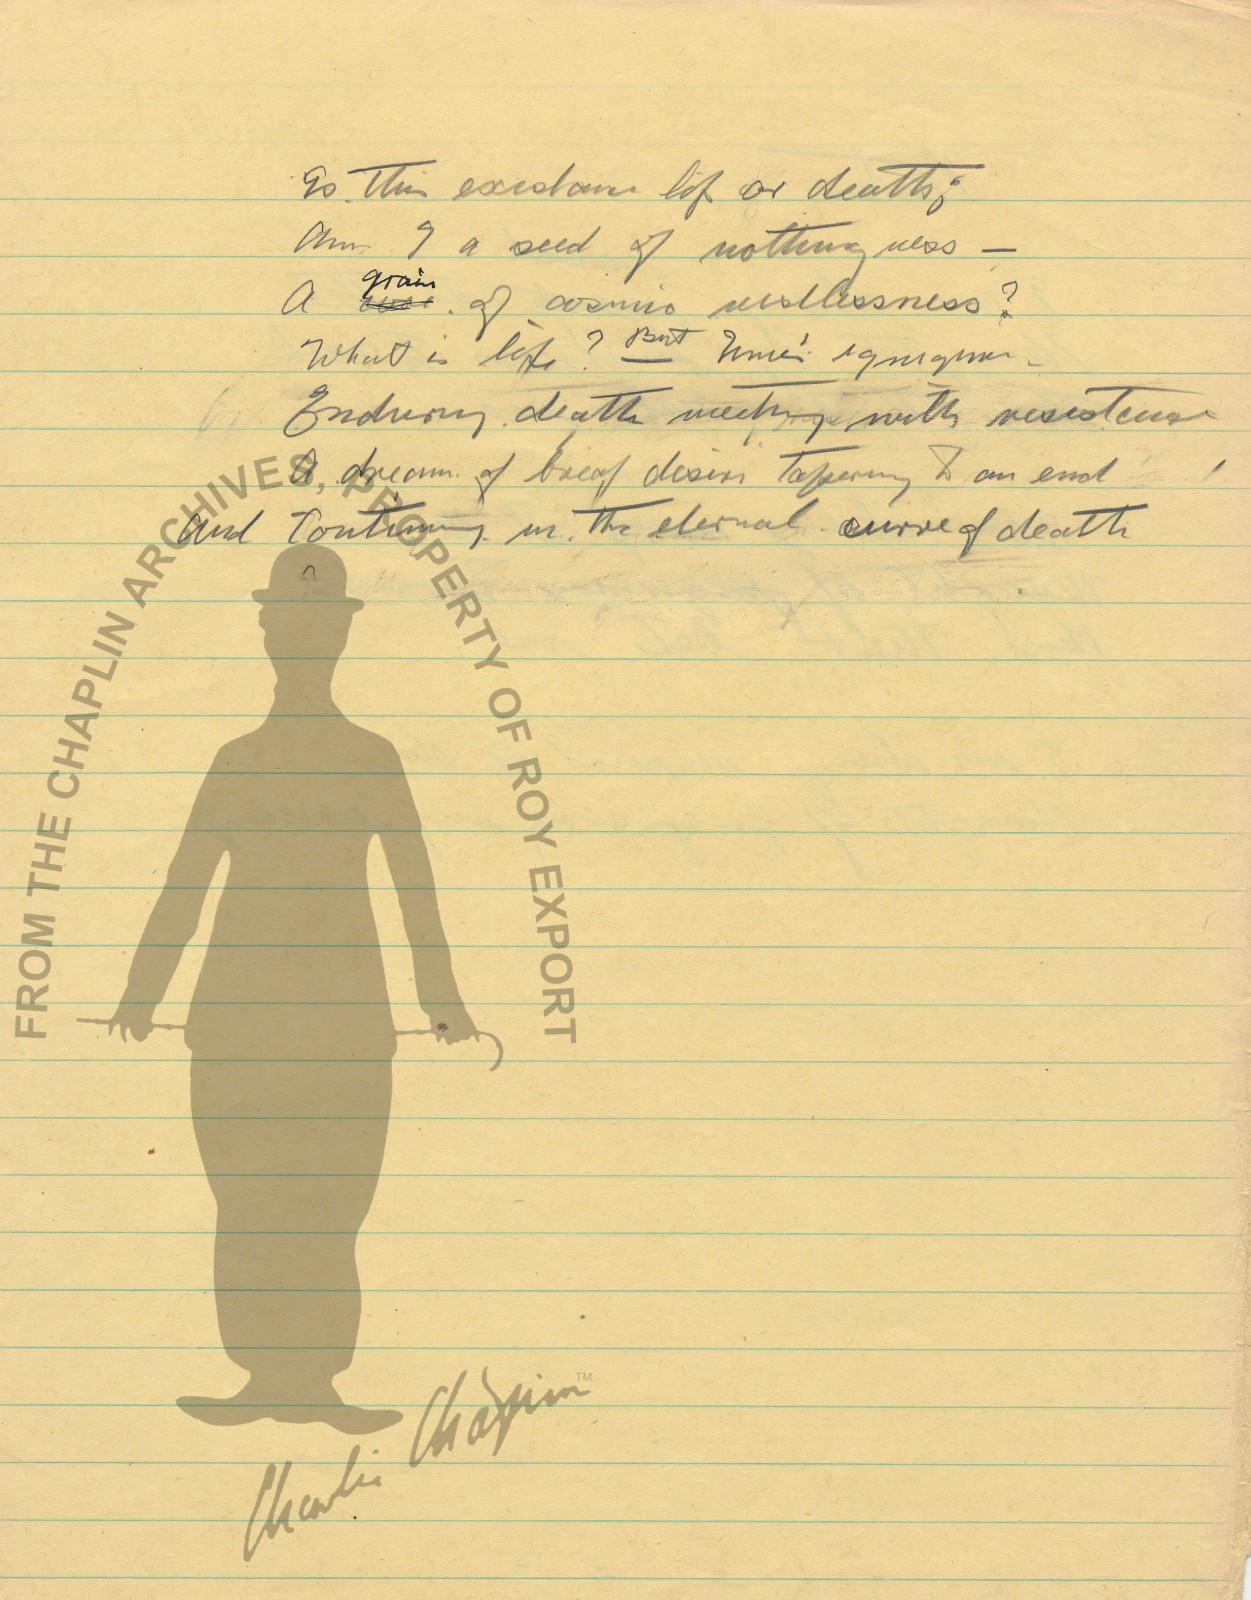 Is this existance life or death;
Am I a seed of nothingness —
A grain of cosmic restlessness?
What is life? But Time's
Enduring death meeting with resistence
A dream of brief desire tapering to an end
And continuing in the eternal curve of death
FROM THE CHAPLIN ARCHIVES, PROPERTY OF ROY EXPORT
Charlie Chaplin TM